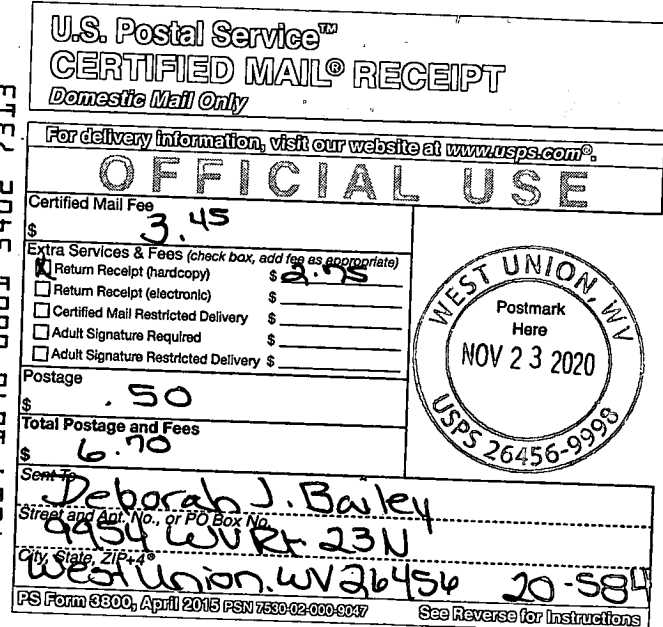 U.S. Postal Service™
CERTIFIED MAIL® RECEIPT
Domestic Mail Only
For delivery information, visit our website at www.usps.com®.
OFFICIAL USE
Certified Mail Fee
$ 3.45
Extra Services & Fees (check box, add fee as appropriate)
Return Receipt (hardcopy) $ 2.75
Return Receipt (electronic) $
Certified Mail Restricted Delivery $
Adult Signature Required $
Adult Signature Restricted Delivery $
Postage
$ .50
Total Postage and Fees
$ 6.70
WEST UNION, WV
Postmark
Here
NOV 23 2020
USPS 26456-9998
Sent To
Deborah J. Bailey
Street and Apt. No., or PO Box No.
9954 WV Rt 23N
City, State, ZIP+4®
West Union, WV 26456 20-584
PS Form 3800, April 2015 PSN 7530-02-000-9047 See Reverse for Instructions